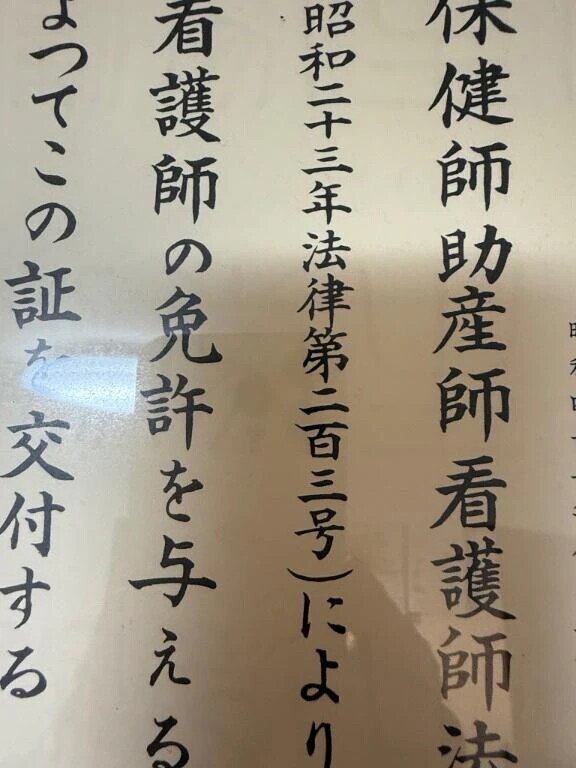 保健師助産師看護師法
昭和二十三年法律第二百三号）により
看護師の免許を与える
よつてこの証を交付する